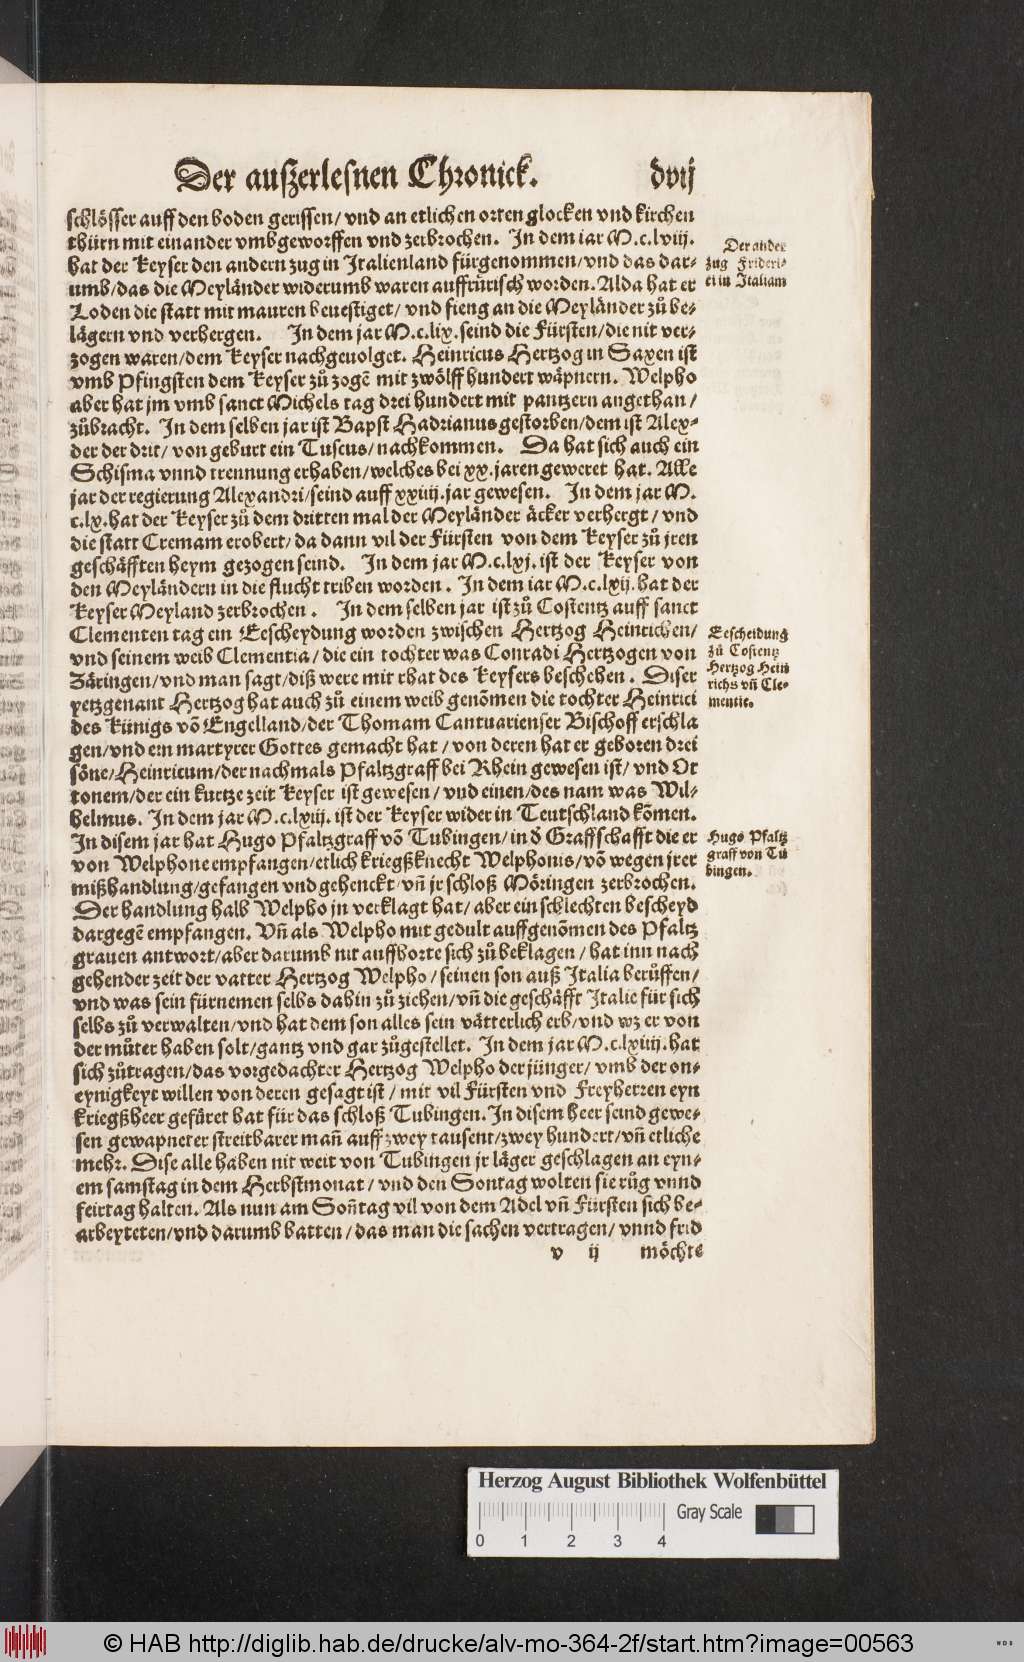 Der auſzerleſnen Chronick. dvij
ſchlöſſer auff den boden geriſſen/ vnd an etlichen orten glocken vnd kirchen
thürn mit einander vmbgeworffen vnd zerbrochen. In dem iar M.c.lviij.
hat der Keyſer den andern zug in Italienland fürgenommen/ vnd das dar-
umb/ das die Meyländer widerumb waren auffrůriſch worden. Alda hat er
Loden die ſtatt mit mauren beueſtiget/ vnd fieng an die Meyländer zů be-
lägern vnd verhergen. In dem jar M.c.lix. ſeind die Fürſten/ die nit ver-
zogen waren/ dem Keyſer nachgeuolget. Heinricus Hertzog in Saxen iſt
vmb Pfingſten dem Keyſer zů zogē mit zwölff hundert wäpnern. Welpho
aber hat jm vmb ſanct Michels tag drei hundert mit pantzern angethan/
zůbracht. In dem ſelben jar iſt Bapſt Hadrianus geſtorben/ dem iſt Alex-
der der drit/ von geburt ein Tuſcus/ nachkommen. Da hat ſich auch ein
Schiſma vnnd trennung erhaben/ welches bei xx. jaren geweret hat. Alle
jar der regierung Alexandri/ ſeind auff xxiiij. jar geweſen. In dem jar M.
c.lx. hat der Keyſer zů dem dritten mal der Meyländer äcker verhergt/ vnd
die ſtatt Cremam erobert/ da dann vil der Fürſten von dem Keyſer zů jren
geſchäfften heym gezogen ſeind. In dem jar M.c.lxj. iſt der Keyſer von
den Meyländern in die flucht triben worden. In dem iar M.c.lxij. hat der
Keyſer Meyland zerbrochen. In dem ſelben jar iſt zů Coſtentz auff ſanct
Clementen tag ein Eeſcheydung worden zwiſchen Hertzog Heinrichen/
vnd ſeinem weib Clementia/ die ein tochter was Conradi Hertzogen von
Zäringen/ vnd man ſagt/ diß were mit rhat des Keyſers beſchehen. Diſer
yetzgenant Hertzog hat auch zů einem weib genōmen die tochter Heinrici
des Künigs vō Engelland/ der Thomam Cantuarienſer Biſchoff erſchla
gen/ vnd ein martyrer Gottes gemacht hat/ von deren hat er geboren drei
ſöne/ Heinricum/ der nachmals Pfaltzgraff bei Rhein geweſen iſt/ vnd Ot
tonem/ der ein kurtze zeit Keyſer iſt geweſen/ vnd einen/ des nam was Wil-
helmus. In dem jar M.c.lxiij. iſt der Keyſer wider in Teutſchland kōmen.
In diſem jar hat Hugo Pfaltzgraff vō Tubingen/ in d̄ Graffſchafft die er
von Welphone empfangen/ etlich kriegßknecht Welphonis/ vō wegen jrer
mißhandlung/ gefangen vnd gehenckt/ vn̄ jr ſchloß Möringen zerbrochen.
Der handlung halb Welpho jn verklagt hat/ aber ein ſchlechten beſcheyd
dargegē empfangen. Vn̄ als Welpho mit gedult auffgenōmen des Pfaltz
grauen antwort/ aber darumb nit auffhorte ſich zů beklagen/ hat inn nach
gehender zeit der vatter Hertzog Welpho/ ſeinen ſon auß Italia berůffen/
vnd was ſein fürnemen ſelbs dahin zů ziehen/ vn̄ die geſchäfft Italie für ſich
ſelbs zů verwalten/ vnd hat dem ſon alles ſein vätterlich erb/ vnd wz er von
der můter haben ſolt/ gantz vnd gar zůgeſtellet. In dem jar M.c.lxiiij. hat
ſich zůtragen/ das vorgedachter Hertzog Welpho der jünger/ vmb der on-
eynigkeyt willen von deren geſagt iſt/ mit vil Fürſten vnd Freyherren eyn
kriegßheer gefüret hat für das ſchloß Tubingen. In diſem heer ſeind gewe-
ſen gewapneter ſtreitbarer man̄ auff zwey tauſent/ zwey hundert/ vn̄ etliche
mehr. Diſe alle haben nit weit von Tubingen jr läger geſchlagen an eyn-
em ſamſtag in dem Herbſtmonat/ vnd den Sontag wolten ſie růg vnnd
feirtag halten. Als nun am Son̄tag vil von dem Adel vn̄ Fürſten ſich be-
arbeyteten/ vnd darumb batten/ das man die ſachen vertragen/ vnnd frid
v ij möchte
Der ander
zug Frideri-
ci in Italiam
Eeſcheidung
zů Coſtentz
Hertzog Hein
richs vn̄ Cle-
mentie.
Hugo Pfaltz
graff von Tü
bingen.
Herzog August Bibliothek Wolfenbüttel
Gray Scale
0 1 2 3 4
© HAB http://diglib.hab.de/drucke/alv-mo-364-2f/start.htm?image=00563